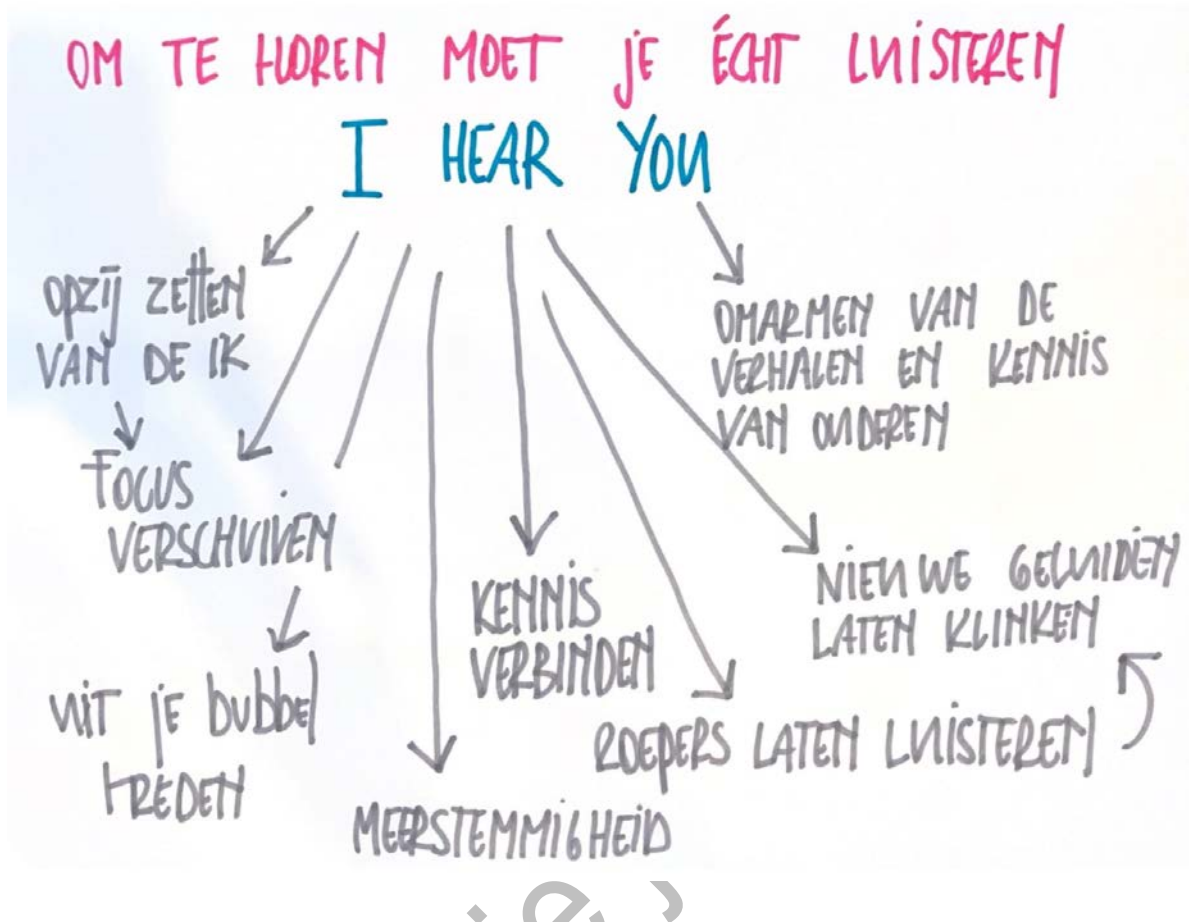 OM TE HOREN MOET JE ÉCHT LUISTEREN
I HEAR YOU
OPZIJ ZETTEN
VAN DE IK
FOCUS
VERSCHUIVEN
UIT JE bubbel
TREDEN
MEERSTEMMIGHEID
KENNIS
VERBINDEN
ROEPERS LATEN LUISTEREN
NIEUWE GELUIDEN
LATEN KLINKEN
OMARMEN VAN DE
VERHALEN EN KENNIS
VAN OUDEREN